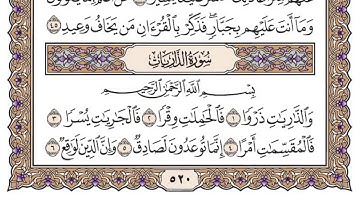 وَمَآ أَنتَ عَلَيْهِم بِجَبَّارٍ ۖ فَذَكِّرْ بِٱلْقُرْءَانِ مَن يَخَافُ وَعِيدِ ٤٥
سُورَةُ الذَّارِيَاتِ
بِسْمِ ٱللَّهِ ٱلرَّحْمَٰنِ ٱلرَّحِيمِ
وَٱلذَّٰرِيَٰتِ ذَرْوًا ١ فَٱلْحَٰمِلَٰتِ وِقْرًا ٢ فَٱلْجَٰرِيَٰتِ يُسْرًا ٣
فَٱلْمُقَسِّمَٰتِ أَمْرًا ٤ إِنَّمَا تُوعَدُونَ لَصَادِقٌ ٥ وَإِنَّ ٱلدِّينَ لَوَٰقِعٌ ٦
٥٢٠